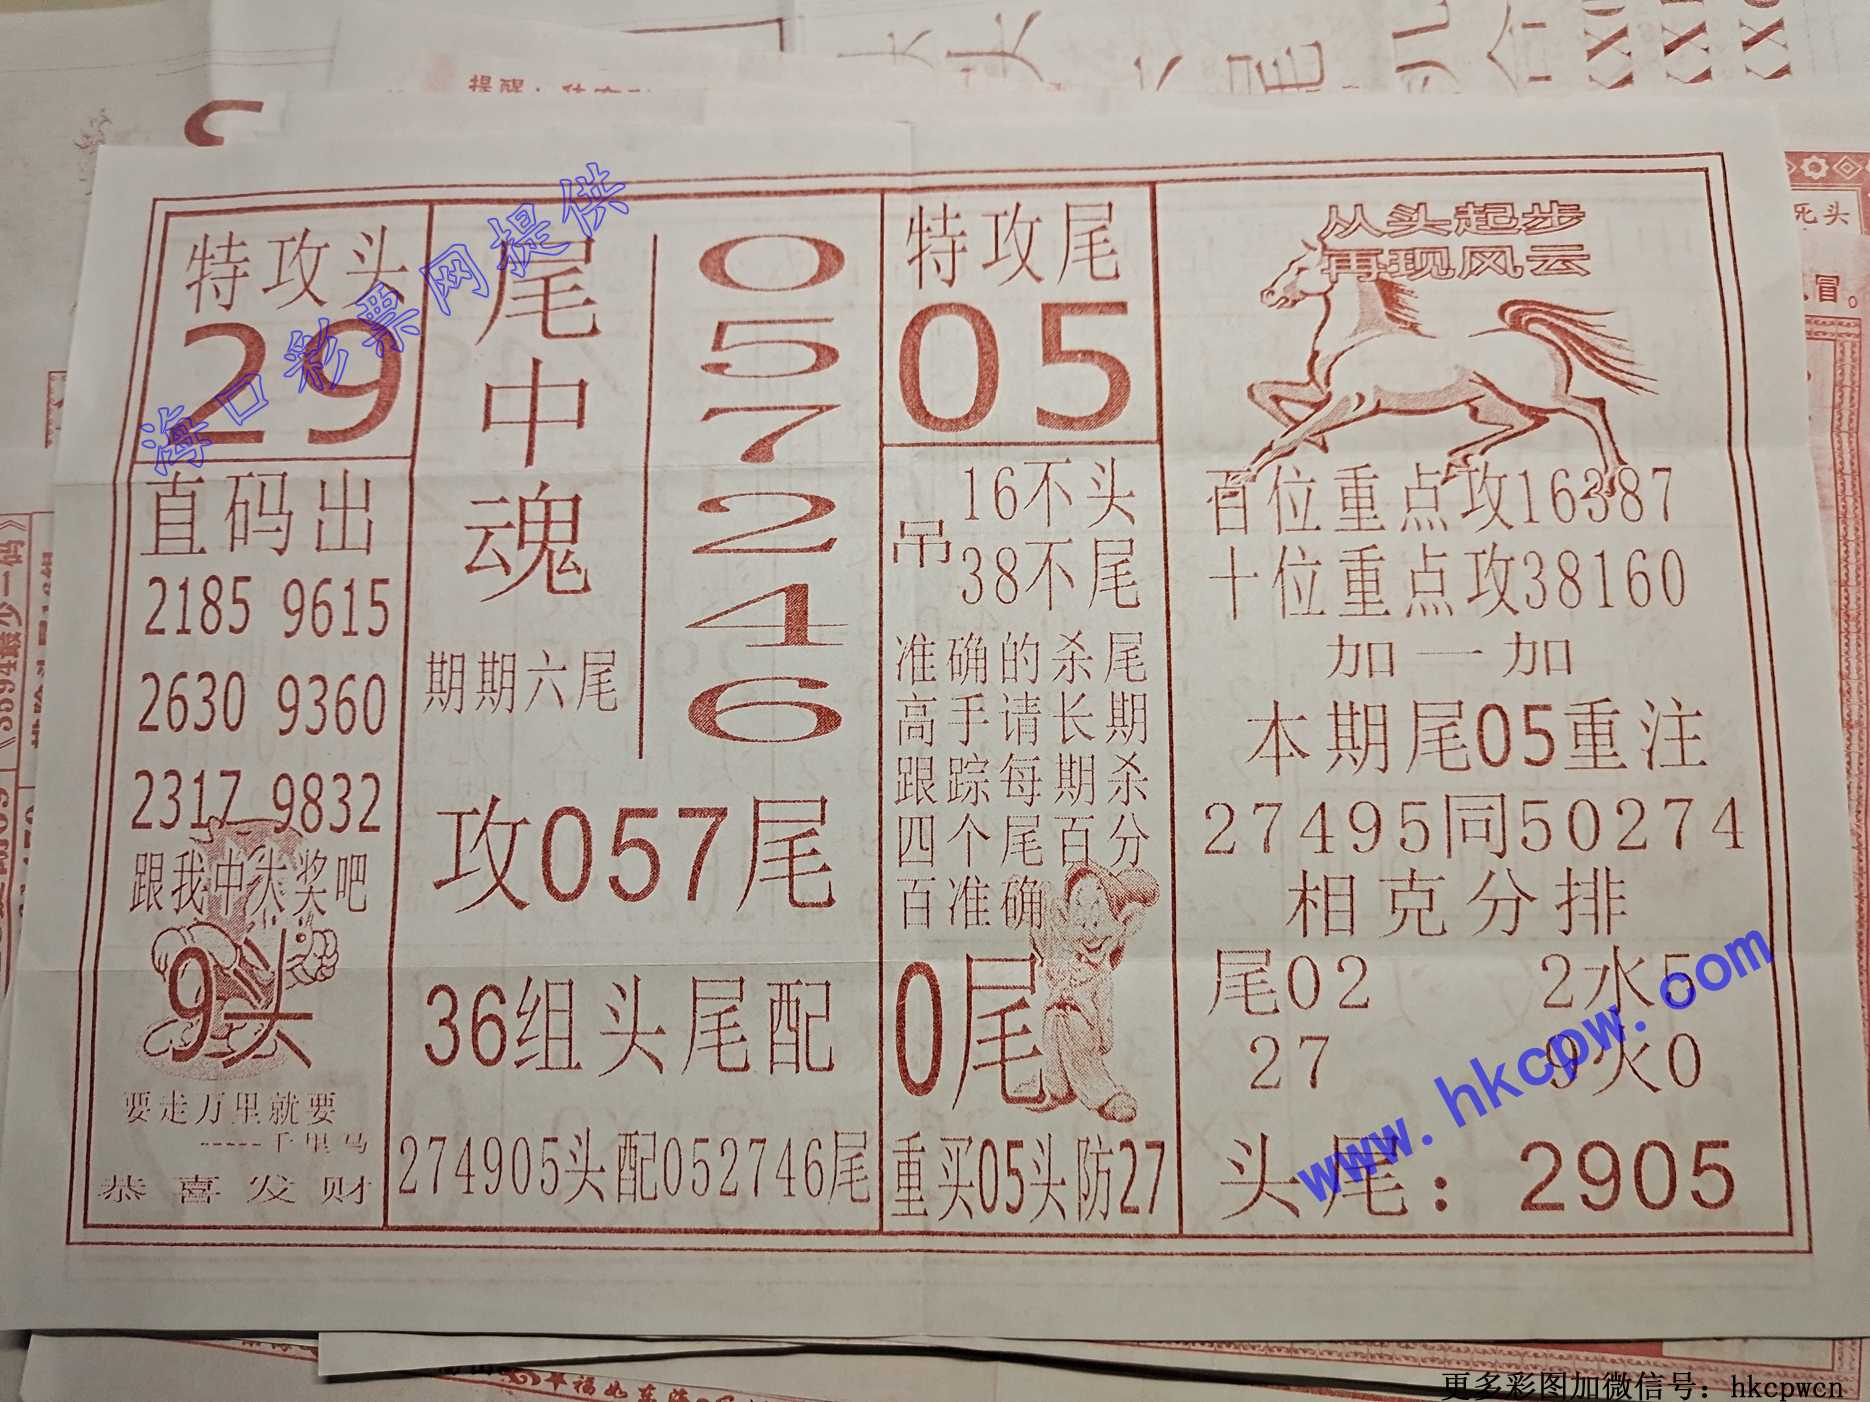 提醒：
死头
冒。
海口彩票网提供
特攻头
29
直码出
2185 9615
2630 9360
2317 9832
跟我中大奖吧
9头
要走万里就要
-----千里马
恭喜发财
尾中魂
期期六尾
0
5
7
2
4
6
攻057尾
36组头尾配
274905头配052746尾
特攻尾
05
吊
16不头
38不尾
准确的杀尾
高手请长期
跟踪每期杀
四个尾百分
百准确
0尾
重买05头防27
从头起步
再现风云
百位重点攻16387
十位重点攻38160
加一加
本期尾05重注
27495同50274
相克分排
尾02 2水5
27 9火0
头尾：2905
www.hkcpw.com
更多彩图加微信号：hkcpwcn